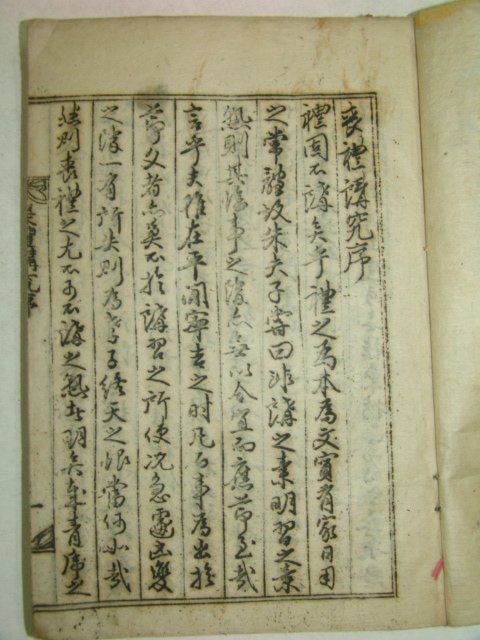 喪禮講究序
禮固不講矣乎禮之爲本爲文實有家日用
之常體故朱夫子嘗曰非講之素明習之素
熟則其臨事之際亦無以合宜而應節至哉
言乎夫雖在平閒寧吉之時凡百事爲出於
節文者亦莫不於講習之所使况急遽凶變
之際一有所失則爲孝子終天之恨當何如哉
然則喪禮之尤不可不講之熟者明矣
喪禮講究序
一